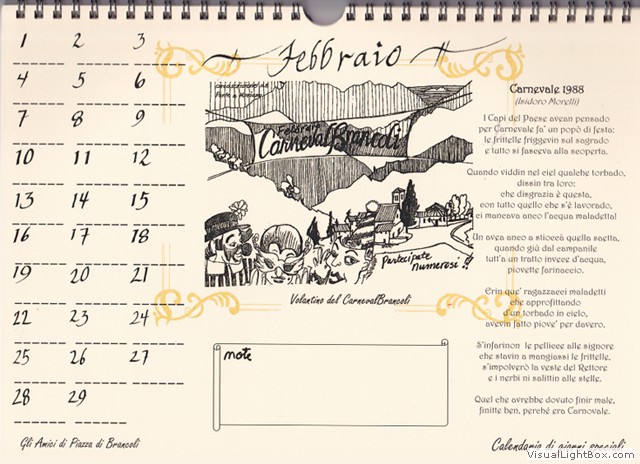 Febbraio
1 2 3
4 5 6
7 8 9
10 11 12
13 14 15
16 17 18
19 20 21
22 23 24
25 26 27
28 29
Gli Amici di Piazza di Brancoli
CarnevalBrancoli
Partecipate
numerosi!!
Volantino del CarnevalBrancoli
note
Carnevale 1988
(Isidoro Morelli)
I Capi del Paese avean pensado
per Carnevale fa' un popò di festa:
le frittelle friggevin sul sagrado
e tutto si faseva alla scoperta.
Quando viddin nel ciel qualche torbado,
dissin tra loro:
che disgrazia è questa,
con tutto quello che s'è lavorado,
ci mancava anco l'acqua maladetta!
Un avea anco a stioccà quella saetta,
quando giù dal campanile
tutt'a un tratto invece d'acqua,
piovette farinaccio.
Erin que' ragazzacci maladetti
che approfittando
d'un torbado in cielo,
avevin fatto piove' per davero.
S'infarinon le pellicce alle signore
che stavin a mangiassi le frittelle,
s'impolverò la veste del Rettore
e i nerbi ni salittin alle stelle.
Quel che avrebbe dovuto finir male,
finitte ben, perché era Carnovale.
Calendario di
VisualLightBox.com